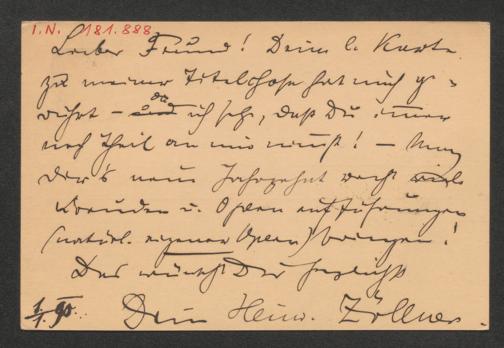 I. N. 181.888
Lieber Freund! Deine l. Karte
zu meiner Titelchose hat mich ge-
rührt – da ich sehe, daß Du immer
noch Theil an mir nimmst! – Mag
Dir's neue Jahrzehnt recht viele
Freuden u. Opernaufführungen
(natürl. eigener Opern) bringen!
Das wünscht Dir herzlichst
1/1. 90. Dein Heinr. Zöllner.